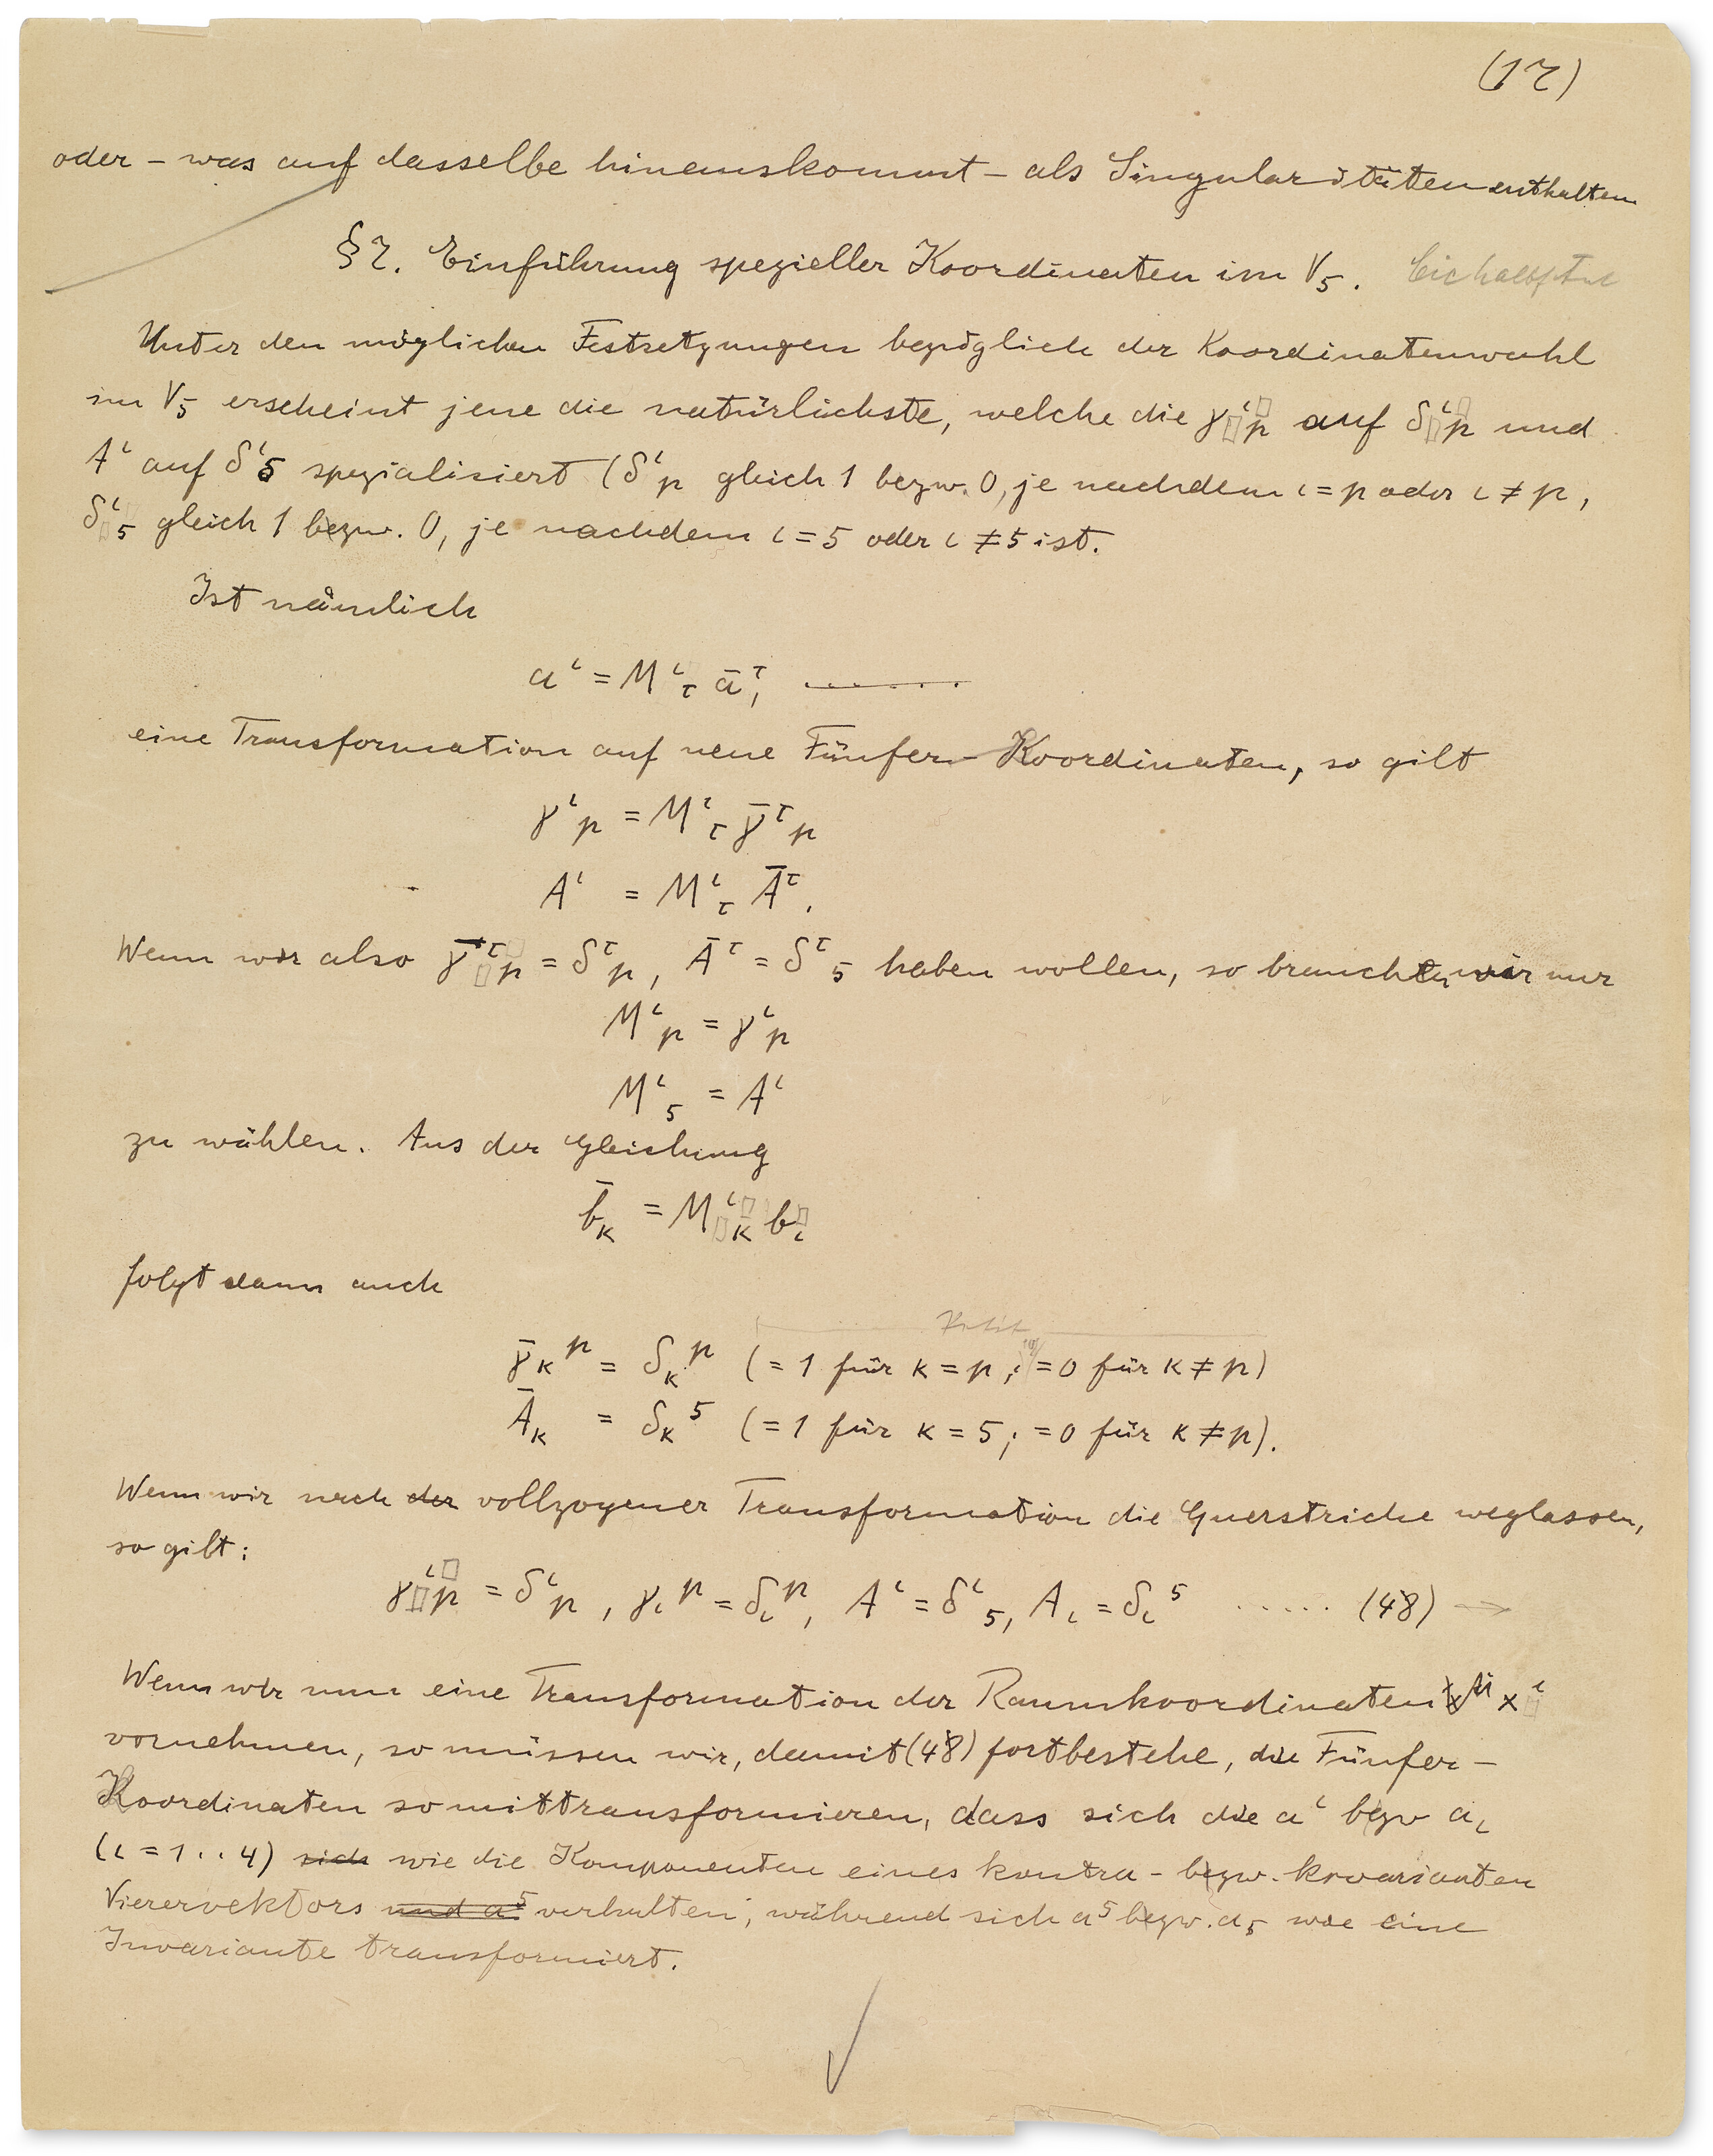 (17)
oder – was auf dasselbe hinauskommt – als Singularitäten enthalten
§7. Einführung spezieller Koordinaten im V₅.
Unter den möglichen Festsetzungen bezüglich der Koordinatenwahl
im V₅ erscheint jene die natürlichste, welche die γ^ι_p auf δ^ι_p und
A^ι auf δ^ι_5 spezialisiert (δ^ι_p gleich 1 bezw. 0, je nachdem ι = p oder ι ≠ p,
δ^ι_5 gleich 1 bezw. 0, je nachdem ι = 5 oder ι ≠ 5 ist.
Ist nämlich
a^ι = M^ι_τ ā^τ, .......
eine Transformation auf neue Fünfer-Koordinaten, so gilt
γ^ι_p = M^ι_τ γ̄^τ_p
A^ι = M^ι_τ Ā^τ.
Wenn wir also γ̄^τ_p = δ^τ_p, Ā^τ = δ^τ_5 haben wollen, so brauchen wir nur
M^ι_p = γ^ι_p
M^ι_5 = A^ι
zu wählen. Aus der Gleichung
b̄_κ = M^ι_κ b_ι
folgt dann auch
γ̄_κ^p = δ_κ^p (= 1 für κ = p; = 0 für κ ≠ p)
Ā_κ = δ_κ^5 (= 1 für κ = 5; = 0 für κ ≠ p).
Wenn wir nach der vollzogener Transformation die Querstriche weglassen,
so gilt:
γ^ι_p = δ^ι_p, γ_ι^p = δ_ι^p, A^ι = δ^ι_5, A_ι = δ_ι^5 ..... (48) →
Wenn wir nun eine Transformation der Raumkoordinaten x^i
vornehmen, so müssen wir, damit (48) fortbestehe, die Fünfer-
Koordinaten so mittransformieren, dass sich die a^ι bezw a_ι
(ι = 1..4) sich wie die Komponenten eines kontra- bezw. kovarianten
Vierervektors und a^5 verhalten, während sich a^5 bezw. a_5 wie eine
Invariante transformiert.